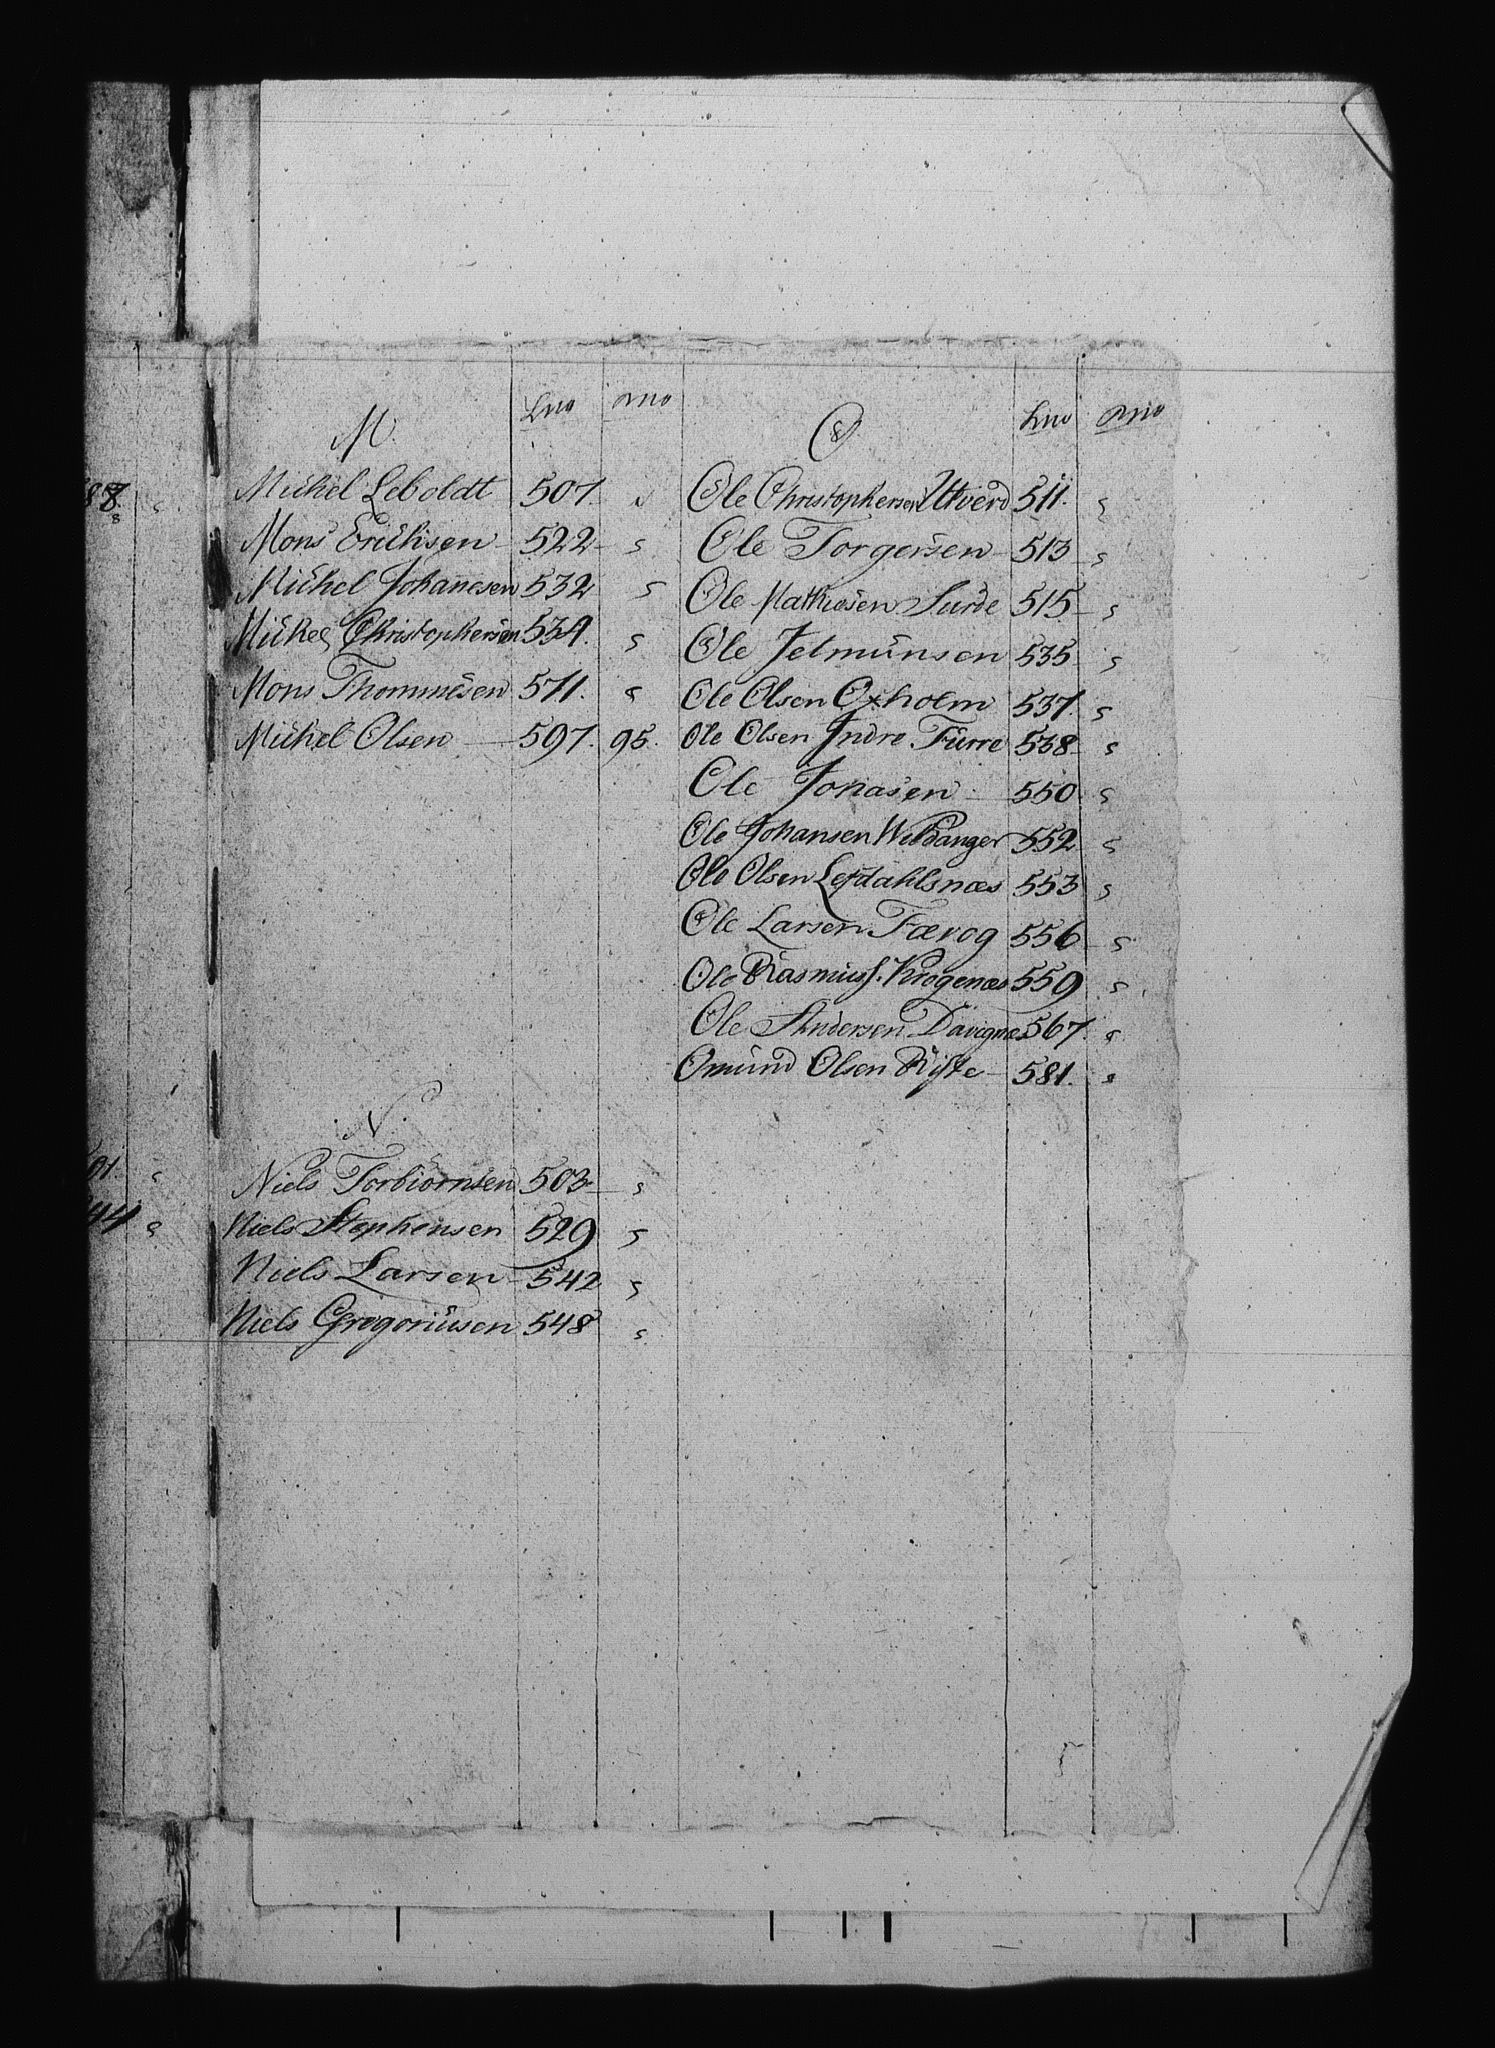 M.
Lno Rno
Michel Leboldt 507. s
Mons Erichsen 522 s
Michel Johanesen 532 s
Mickel Christophersen 534. s
Mons Thommesen 571. s
Michel Olsen 597. 95.
N.
Niels Torbiörnsen 503 s
Niels Stephensen 529 s
Niels Larsen 542 s
Niels Gregoriusen 548 s
O
Lno Rno
Ole Christophersen Utverd 511. s
Ole Torgersen 513 s
Ole Mathiesen Surde 515 s
Ole Jetmundsen 535 s
Ole Olsen Oxholm 537. s
Ole Olsen Indre Furre 538 s
Ole Jonasen 550 s
Ole Johansen Wildanger 552 s
Ole Olsen Lefdahlsnæs 553 s
Ole Larsen Færog 556 s
Ole Rasmuss. Krogenæs 559 s
Ole Andersen 567. s
Omund Olsen Riste 581. s